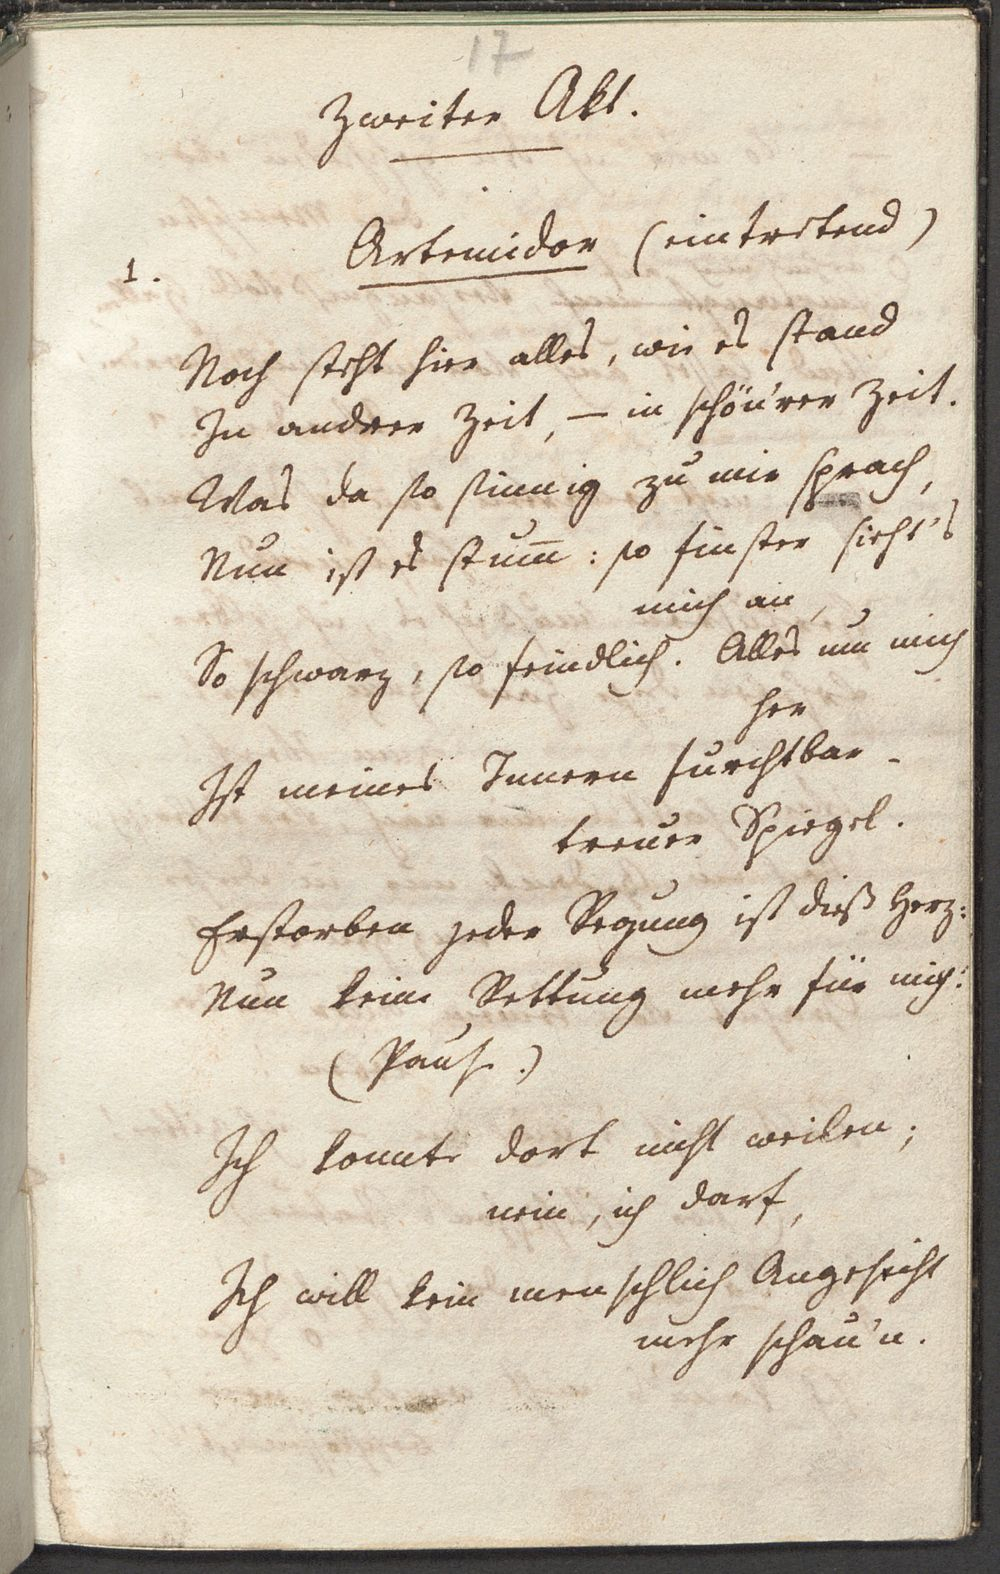 17
Zweiter Akt.
Artemidor (eintretend)
1.
Noch steht hier alles, wie es stand
In andrer Zeit, – in schön'rer Zeit.
Was da so sinnig zu mir sprach,
Nun ist es stum̅: so finster sieht's
mich an,
So schwarz, so feindlich. Alles um mich
her
Ist meines Innern furchtbar-
treuer Spiegel.
Erstorben jeder Regung ist dieß Herz:
Nun keine Rettung mehr für mich:
(Pause.)
Ich konnte dort nicht weilen;
nein, ich darf,
Ich will kein menschlich Angesicht
mehr schau'n.